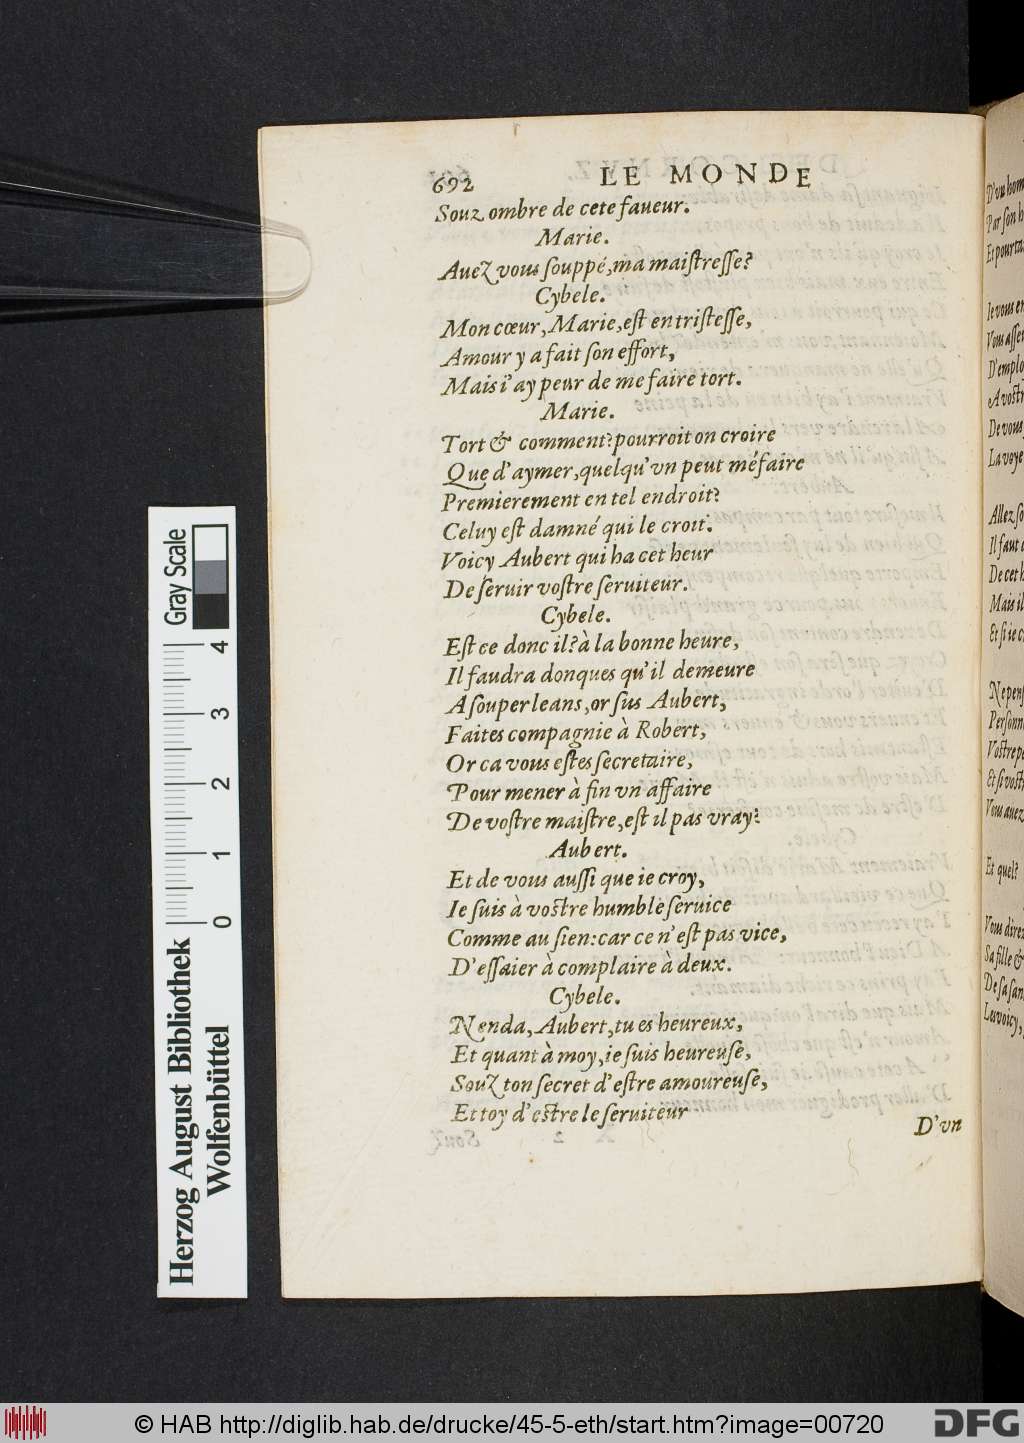 692 LE MONDE
Souz ombre de cete faueur.
Marie.
Auez vous souppé, ma maistresse?
Cybele.
Mon cœur, Marie, est en tristesse,
Amour y a fait son effort,
Mais i'ay peur de me faire tort.
Marie.
Tort & comment? pourroit on croire
Que d'aymer, quelqu'vn peut méfaire
Premierement en tel endroit?
Celuy est damné qui le croit.
Voicy Aubert qui ha cet heur
De seruir vostre seruiteur.
Cybele.
Est ce donc il? à la bonne heure,
Il faudra donques qu'il demeure
A souper leans, or sus Aubert,
Faites compagnie à Robert,
Or ca vous estes secretaire,
Pour mener à fin vn affaire
De vostre maistre, est il pas vray?
Aubert.
Et de vous aussi que ie croy,
Ie suis à vostre humble seruice
Comme au sien: car ce n'est pas vice,
D'essaier à complaire à deux.
Cybele.
Nenda, Aubert, tu es heureux,
Et quant à moy, ie suis heureuse,
Souz ton secret d'estre amoureuse,
Et toy d'estre le seruiteur
D'vn
Par son
Et pourta
Ie vous en
Vous asseu
D'emplo
A vostr
De vous
La voye
Allez so
Il faut
De cet h
Mais il
Et si ie c
Ne pens
Personn
Vostre pe
Et si vostr
Vous auez
Et quel?
Vous direz
Sa fille &
De sa san
Les voicy,
Gray Scale
0 1 2 3 4
Herzog August Bibliothek
Wolfenbüttel
© HAB http://diglib.hab.de/drucke/45-5-eth/start.htm?image=00720
DFG